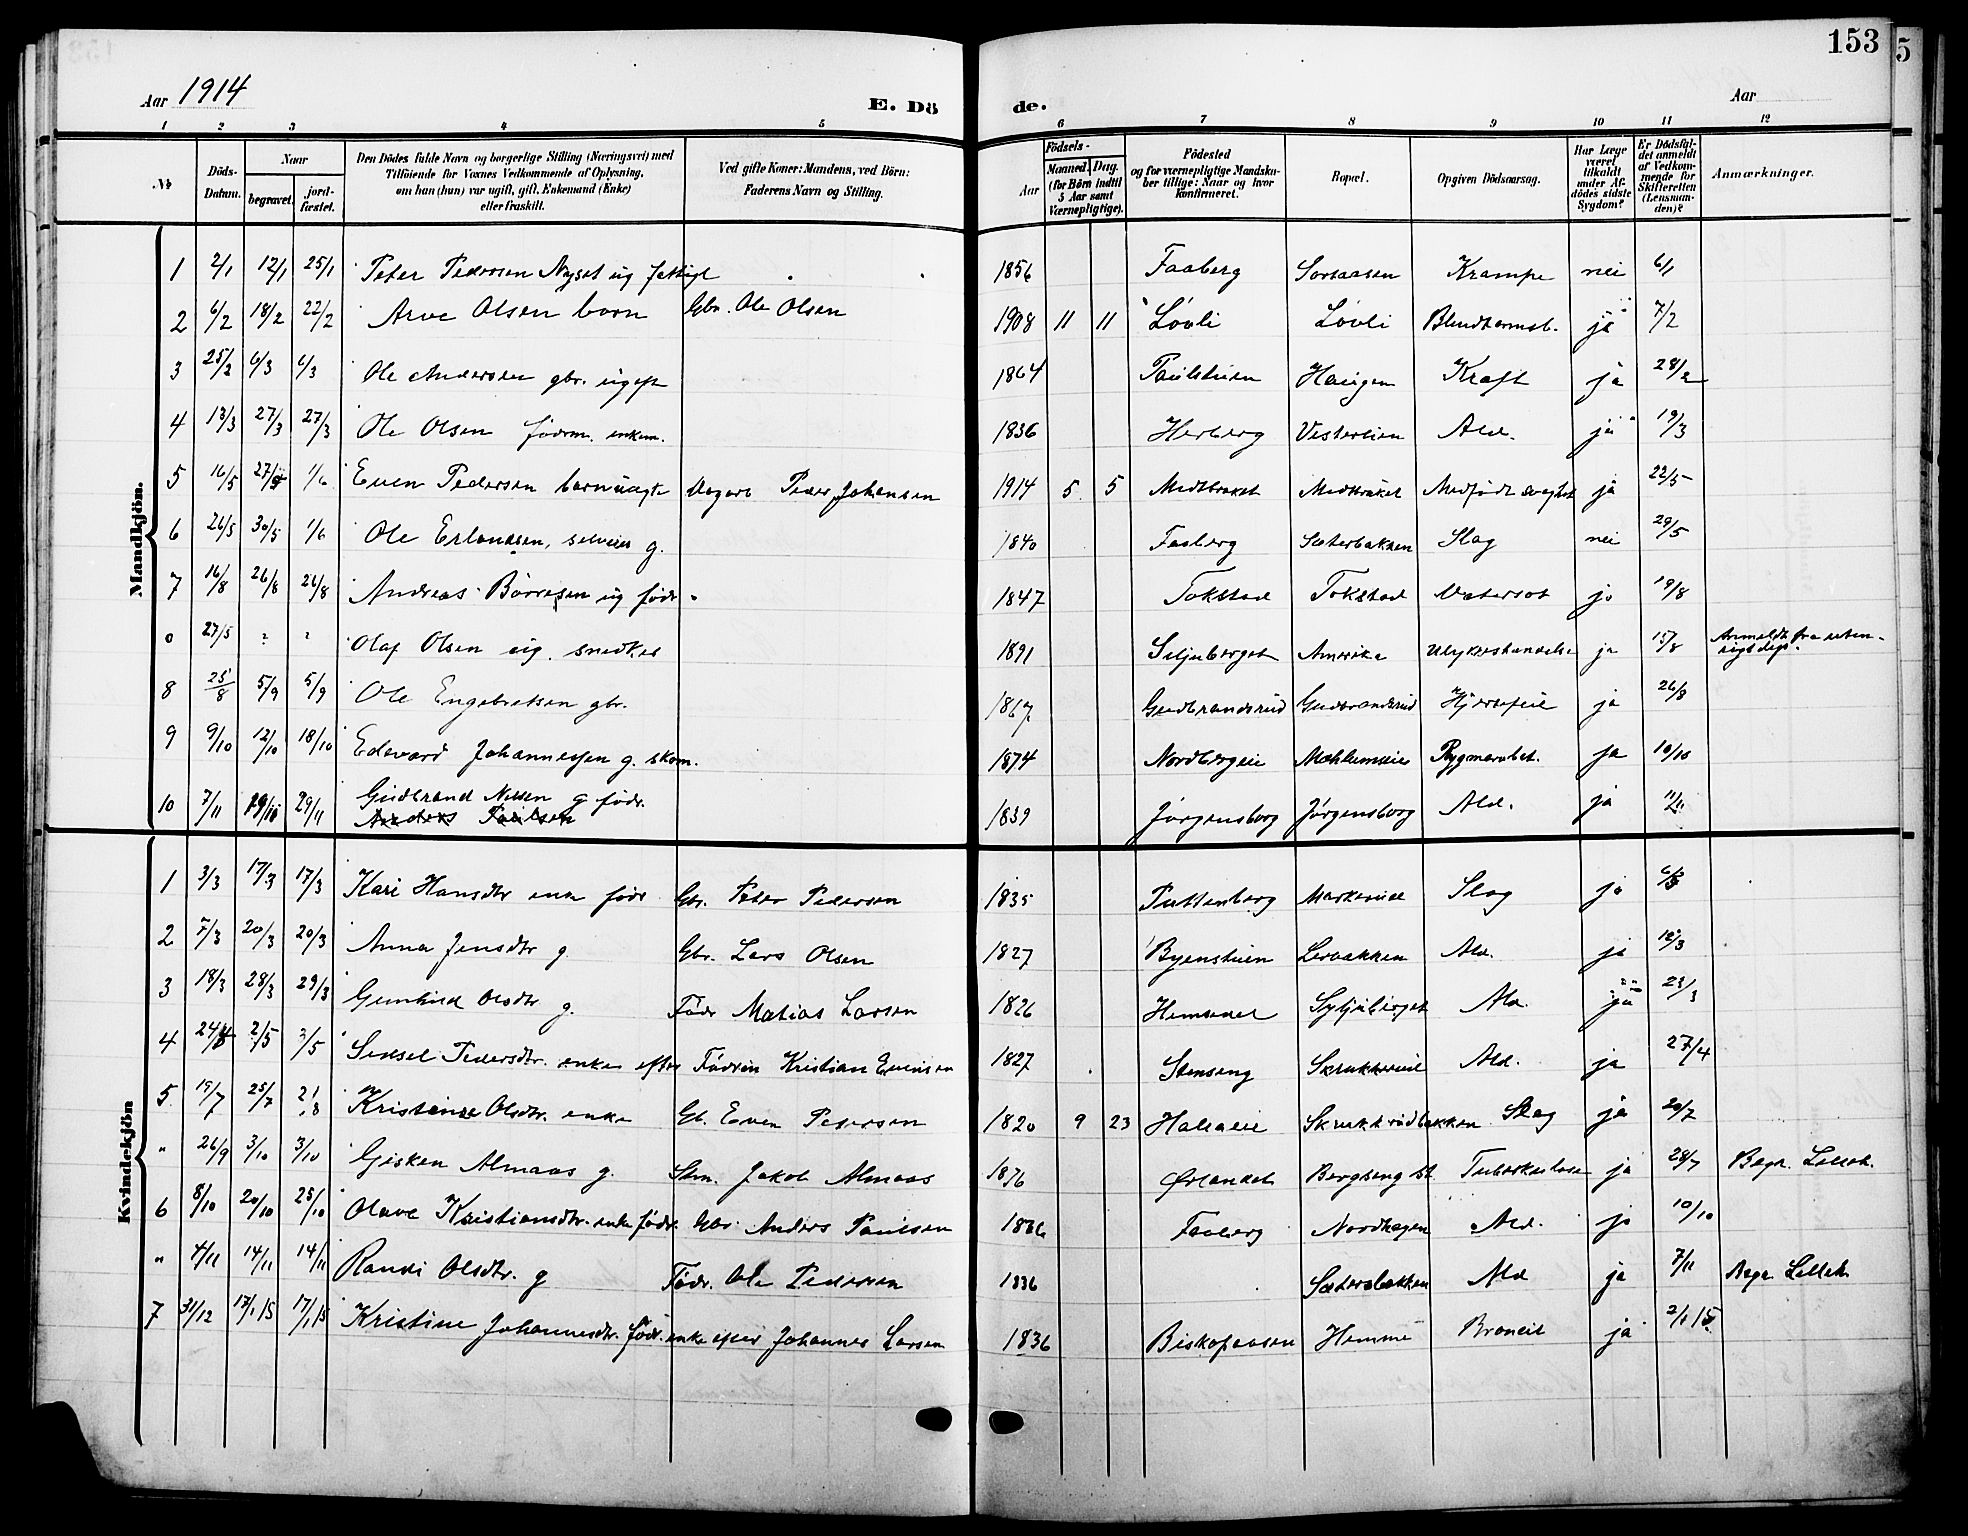 153
5
Aar 1914
E. Dö
de.
Aar
1 2 3 4 5 6 7 8 9 10 11 12
No
Döds-Datum.
Naar
begravet.
jord-fæstet.
Den Dödes fulde Navn og borgerlige Stilling (Næringsvei) med
Tilföiende for Voxnes Vedkommende af Oplysning,
om han (hun) var ugift, gift, Enkemand (Enke)
eller fraskilt.
Ved gifte Koner: Mandens, ved Börn:
Faderens Navn og Stilling.
Födsels-
Aar
Maaned. Dag.
(for Börn indtil
5 Aar samt
Værnepligtige).
Födested
og for værnepligtige Mandska-
ber tillige: Naar og hvor
konfirmeret.
Bopæl.
Opgiven Dödsaarsag.
Har Læge
været
tilkaldt
under Af-
dödes sidste
Sygdom?
Er Dödsfal-
det anmeldt
af Vedkom-
mende for
Skifteretten
(Lensman-
den)?
Anmærkninger.
Mandkjön.
1 2/1 12/1 25/1 Peter Pedersen Nyset ug fattigl 1856 Faaberg Sorsaasen Krampe nei 6/1
2 6/2 18/2 22/2 Arve Olsen barn Gbr. Ole Olsen 1908 11 11 Løvli Løvli Blindtarmsb. ja 7/2
3 25/2 6/3 6/3 Ole Andersen gbr. ugift 1864 Paulstuen Haugen Kræft ja 28/2
4 13/3 27/3 27/3 Ole Olsen fødrm. enkem. 1836 Herberg Vesterlien Ald. ja 19/3
5 16/5 27/5 1/6 Even Pedersen barn uægte Peder Johansen 1914 5 5 Medbraket Medbraket Medfødt svaghet ja 22/5
6 26/5 30/5 1/6 Ole Erlandsen, selveier g. 1840 Faaberg Sæterbakken Slag nei 29/5
7 16/8 26/8 26/8 Andreas Børresen ug fødr. 1847 Tokstad Tokstad Vatersot ja 19/8
0 27/5 ? ? Olaf Olsen ug. snedker 1891 Siljuberget Amerika Ulykkeshændelse ja 15/8 Anmeldt fra uten-
rigsdept.
8 25/8 5/9 5/9 Ole Engebretsen gbr. 1867 Gudbrandsrud Gudbrandsrud Hjertefeil ja 26/8
9 9/10 12/10 18/10 Edevard Johannessen g. skom. 1874 Nordbergeie Mæhlumseie Rygmarvbet. ja 10/10
10 7/11 19/11 29/11 Gudbrand Nilsen g fødr. 1839 Jørgensborg Jørgensborg Ald. ja 11/11
Anders Paulsen
Kvindekjön
1 3/3 17/3 17/3 Kari Hansdtr enke fødr Gbr. Peter Pedersen 1835 Puttenberg Markerud Slag ja 6/3
2 7/3 20/3 20/3 Anna Jensdtr g Gbr. Lars Olsen 1827 Byenstuen Lerbakken Ald. ja 12/3
3 18/3 28/3 29/3 Gunhild Olsdtr g. Fødr Matias Larsen 1826 Hemsedal Syljuberget Ald. ja 23/3
4 24/4 2/5 3/5 Siksel Pedersdtr. enke efter Kristian Evensen 1827 Stenseng Skrukkrueie Ald. ja 27/4
5 19/7 25/7 2/8 Kristense Olsdtr. enke Gb. Even Pedersen 1820 9 23 Skrukkrødbakken Slag ja 20/7
" 26/9 3/10 3/10 Gisken Almaas g. Stm. Jakob Almaas 1876 Ørlandet Bergseng st Tuberkulose ja 28/7 Begr. Lilleh.
6 8/10 20/10 25/10 Olave Kristiansdtr. enke fødr. Gbr. Anders Paulsen 1836 Faaberg Nordhagen Ald. ja 10/10
" 4/11 14/11 14/11 Randi Olsdtr. g Fødr. Ole Pedersen 1836 Sæterbakken Ald ja 7/11 Begr. Lilleh.
7 31/12 17/1 15 17/1 15 Kristine Johannesdtr. fødr. enke efter Johannes Larsen 1836 Biskopaasen Hemma Broncit ja 2/1 15